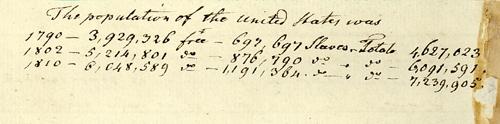 The population of the United States was
1790 – 3,929,326 free – 697,697 Slaves. Totals 4,627,023
1802 – 5,214,801 do – 876,790 do " do – 6,091,591,
1810 – 6,048,589 do – 1,191,364. do – " do – 7,239,905.